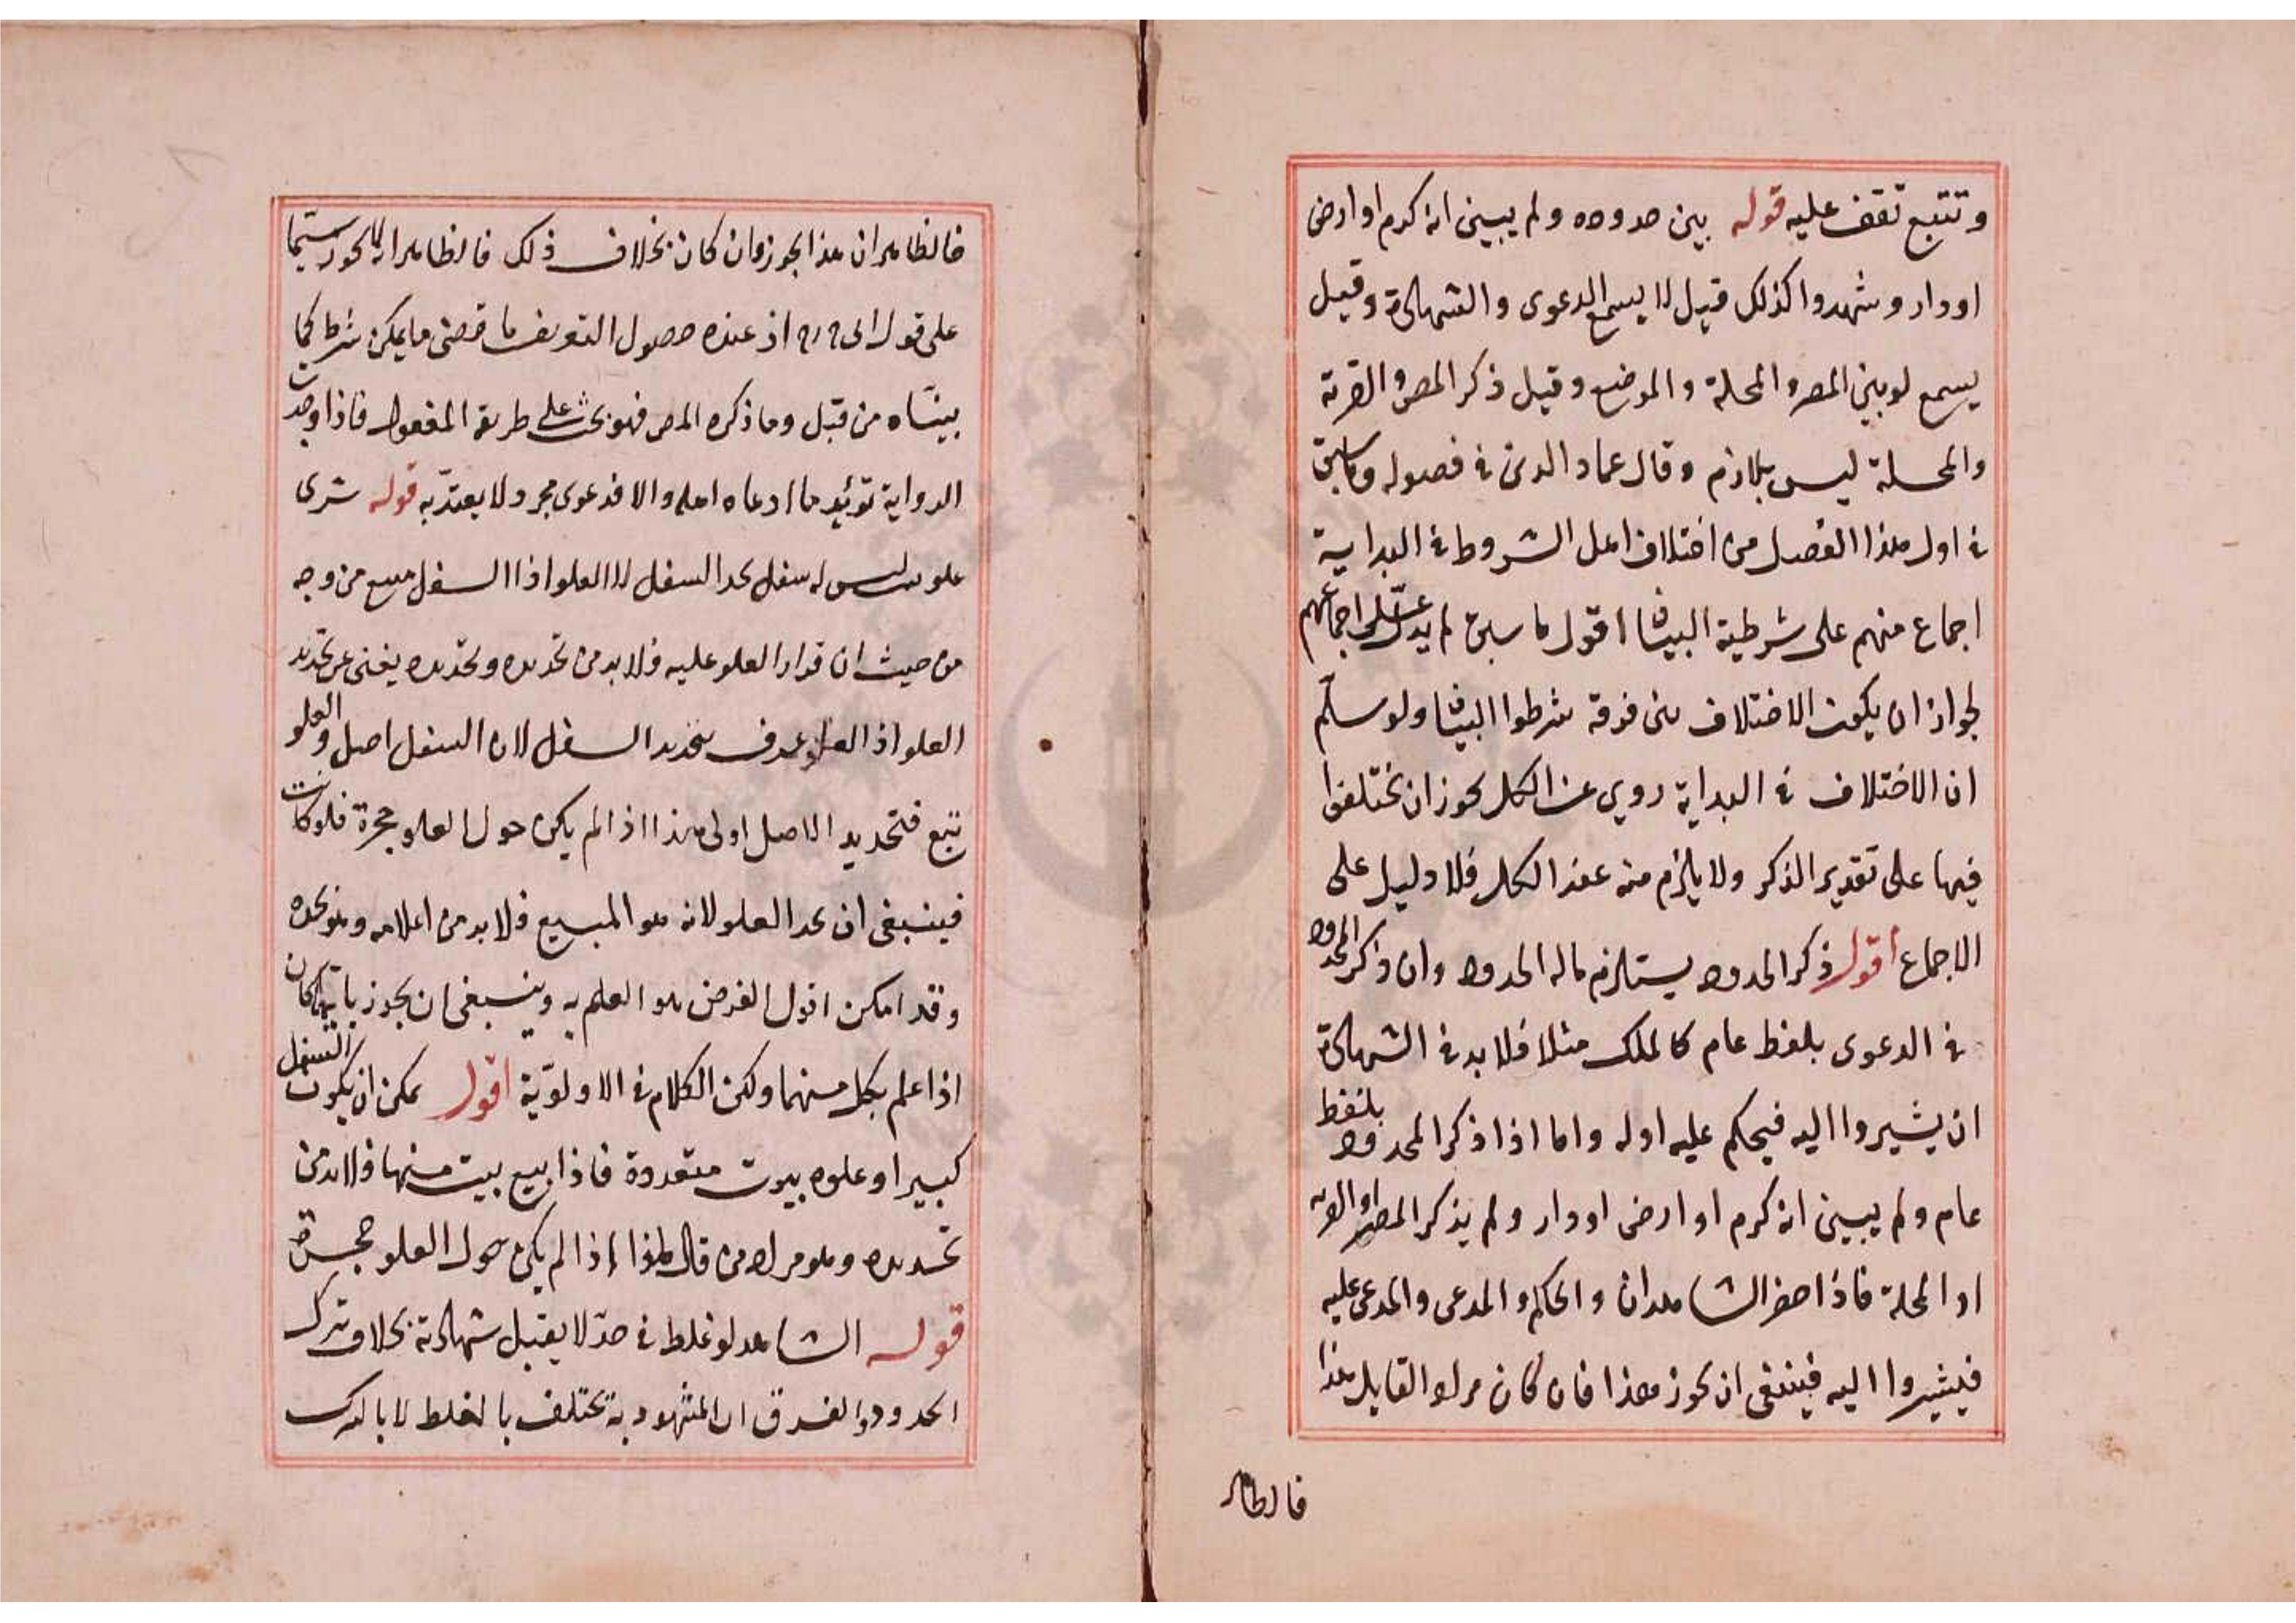 وتتبع تقف عليه قوله بين حدوده ولم يبين انه كرم او ارض
او دار وشهدوا كذلك قيل لا يسمع الدعوى والشهادة وقيل
يسمع لو بين المصر والمحلة والموضع وقيل ذكر المصر والقرية
والمحلة ليس بلازم وقال عماد الدين في فصوله وما سبق
في اول هذا الفصل من اختلاف اهل الشروط في البداية
اجماع منهم على شرطية البيان اقول ما سبق لم يدل على اجماعهم
لجواز ان يكون الاختلاف بين فرقة شرطوا البيان ولو سلم
ان الاختلاف في البداية روي عن الكل يجوز ان يختلفوا
فيها على تقدير الذكر ولا يلزم منه عند الكل فلا دليل على
الاجماع اقول ذكر الحدود يستلزم ماله الحدود وان ذكر المحدود
في الدعوى بلفظ عام كالملك مثلا فلا بد في الشهادة
ان يشيروا اليه فيحكم عليه اوله واما اذا ذكر المحدود بلفظ
عام ولم يبين انه كرم او ارض او دار ولم يذكر المصر او القرية
او المحلة فاذا حضر الشاهدان والحاكم والمدعى والمدعى عليه
فيشيروا اليه فينبغى ان يجوز هذا فان كان مراد القايل هذا
فالظاهر
فالظاهر ان هذا يجوز وان كان بخلاف ذلك فالظاهر انه لا يجوز سيما
على قول ابى ح اذ عنده حصول التعريف باقصى ما يمكن شرط كما
بيناه من قبل وما ذكره المص فهو بحث على طريقة المنقول فاذا وجدت
الرواية تؤيد ما ادعاه اهله والا فدعوى مجرد لا يعتد به قوله شرى
علو بيت ليس له سفل يحد السفل لا العلو اذ السفل مبيع من وجه
من حيث ان قرار العلو عليه فلا بد من تحديده وتحديده يغنى عن تحديد
العلو اذ العلو عرف بتحديد السفل لان السفل اصل والعلو
تبع فتحديد الاصل اولى هذا اذا لم يكن حول العلو حجرة فلو كانت
فينبغى ان يحد العلو لانه هو المبيع فلا بد من اعلامه وهو بحده
وقد امكن اقول الغرض هو العلم به وينبغى ان يجوز بايهما كان
اذا علم بكل منهما ولكن الكلام في الاولوية اقول يمكن ان يكون السفل
كبيرا وعلوه بيوت متعددة فاذا بيع بيت منها فلا بد من
تحديده وهو مراد من قال هذا اذا لم يكن حول العلو حجرة
قوله الشاهد لو غلط في حد لا يقبل شهادته بخلاف ترك
الحدود والفرق ان المشهود به يختلف بالغلط لا بالترك